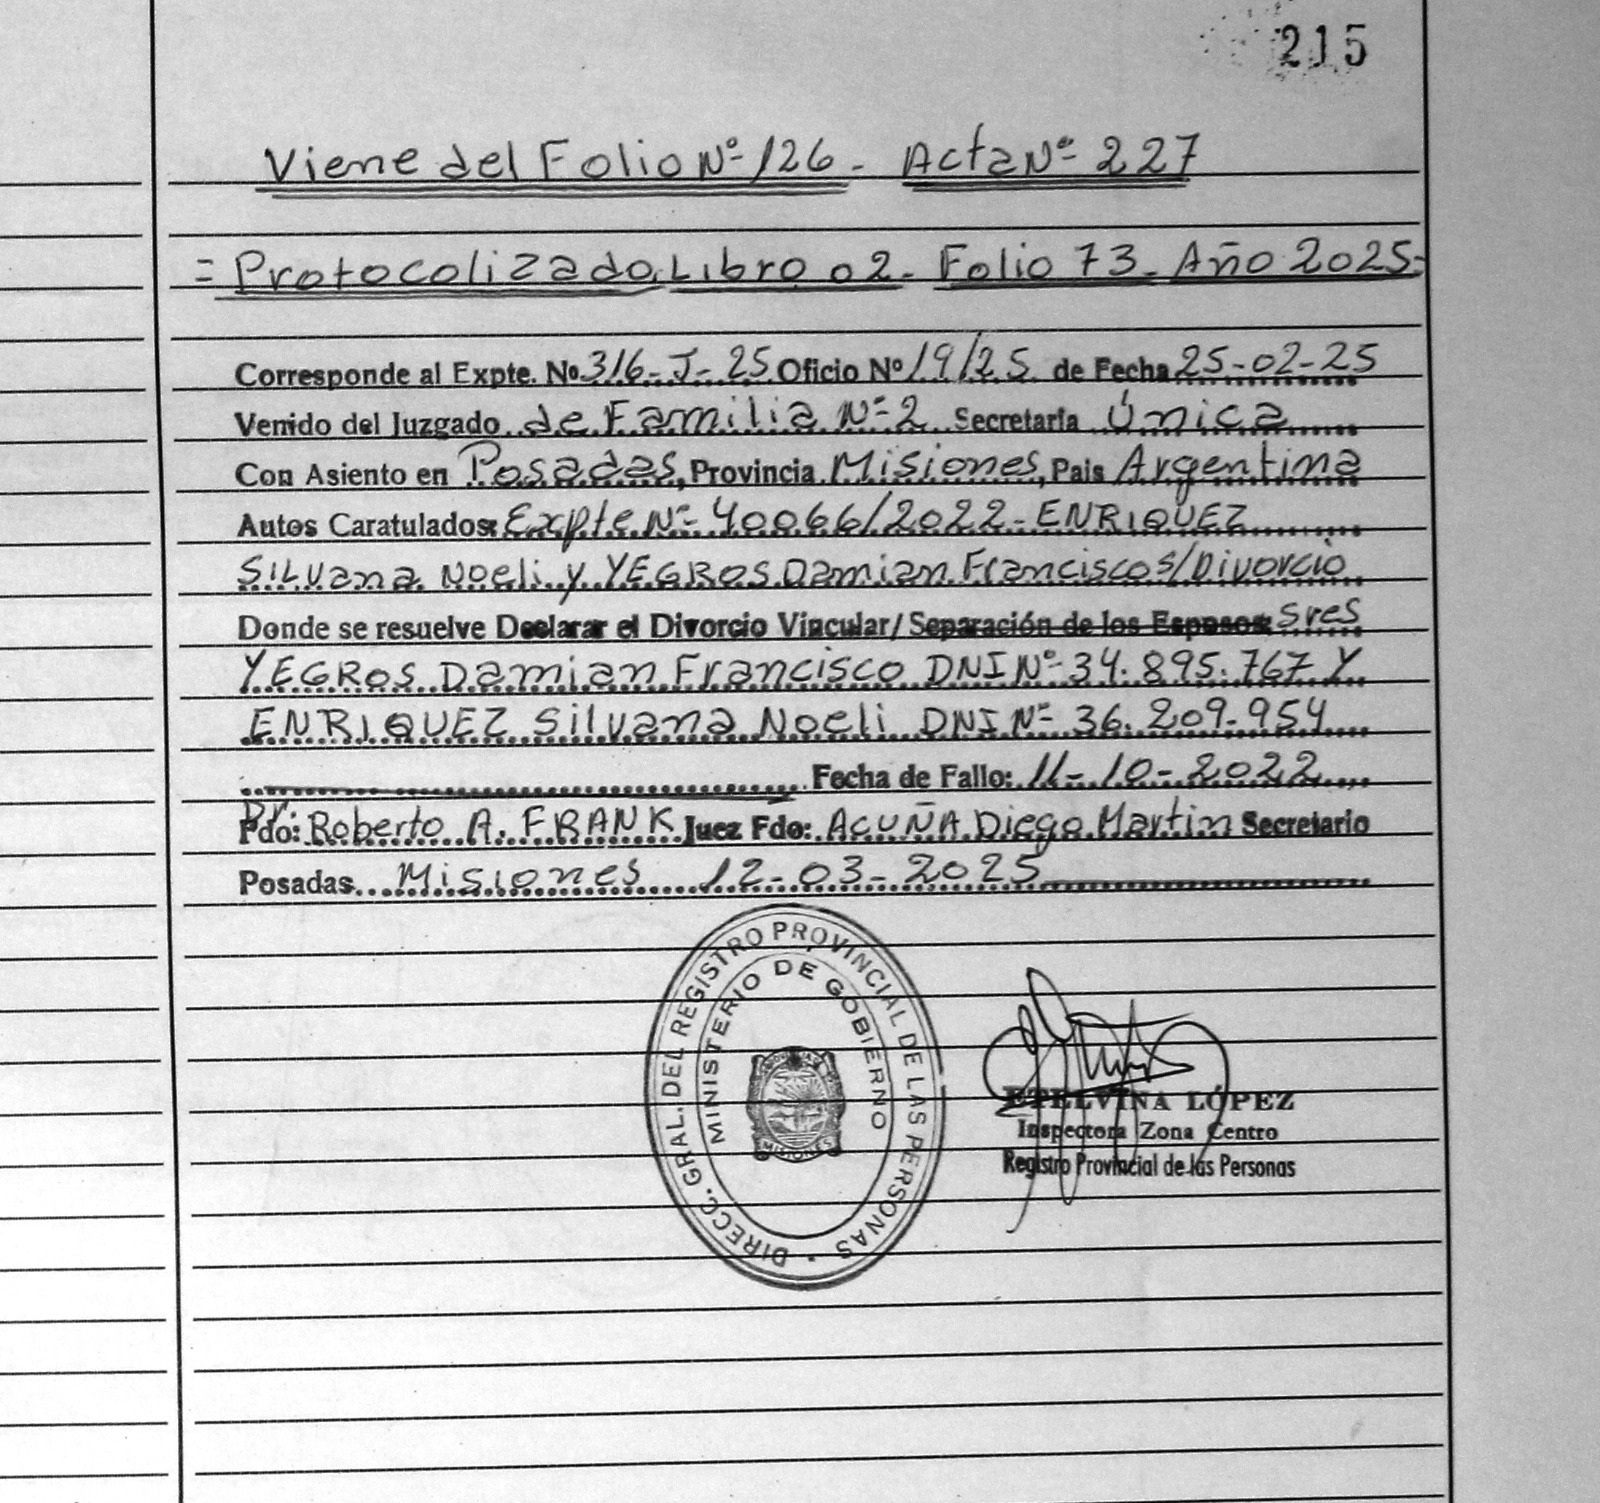 215
Viene del Folio Nº 126 - Acta Nº 227
= Protocolizado Libro 02 - Folio 73 - Año 2025-
Corresponde al Expte. Nº 316-J-25 Oficio Nº 19/25 de Fecha 25-02-25
Venido del Juzgado de Familia Nº 2 Secretaría Única
Con Asiento en Posadas, Provincia Misiones, Pais Argentina
Autos Caratulados: Expte Nº 40066/2022 - ENRIQUEZ
SILvana Noeli y YEGROS Damian Francisco s/Divorcio
Donde se resuelve Declarar el Divorcio Vincular/ Separación de los Esposos: sres
YEGROS Damian Francisco DNI Nº 34.895.767 Y
ENRIQUEZ Silvana Noeli DNI Nº 36.209.954
Fecha de Fallo: 11-10-2022
Fdo: Dr. Roberto A. FRANK Juez Fdo: ACUÑA Diego Martin Secretario
Posadas Misiones 12-03-2025
DIRECC. GRAL. DEL REGISTRO PROVINCIAL DE LAS PERSONAS
MINISTERIO DE GOBIERNO
MISIONES
ETELVINA LÓPEZ
Inspectora Zona Centro
Registro Provincial de las Personas